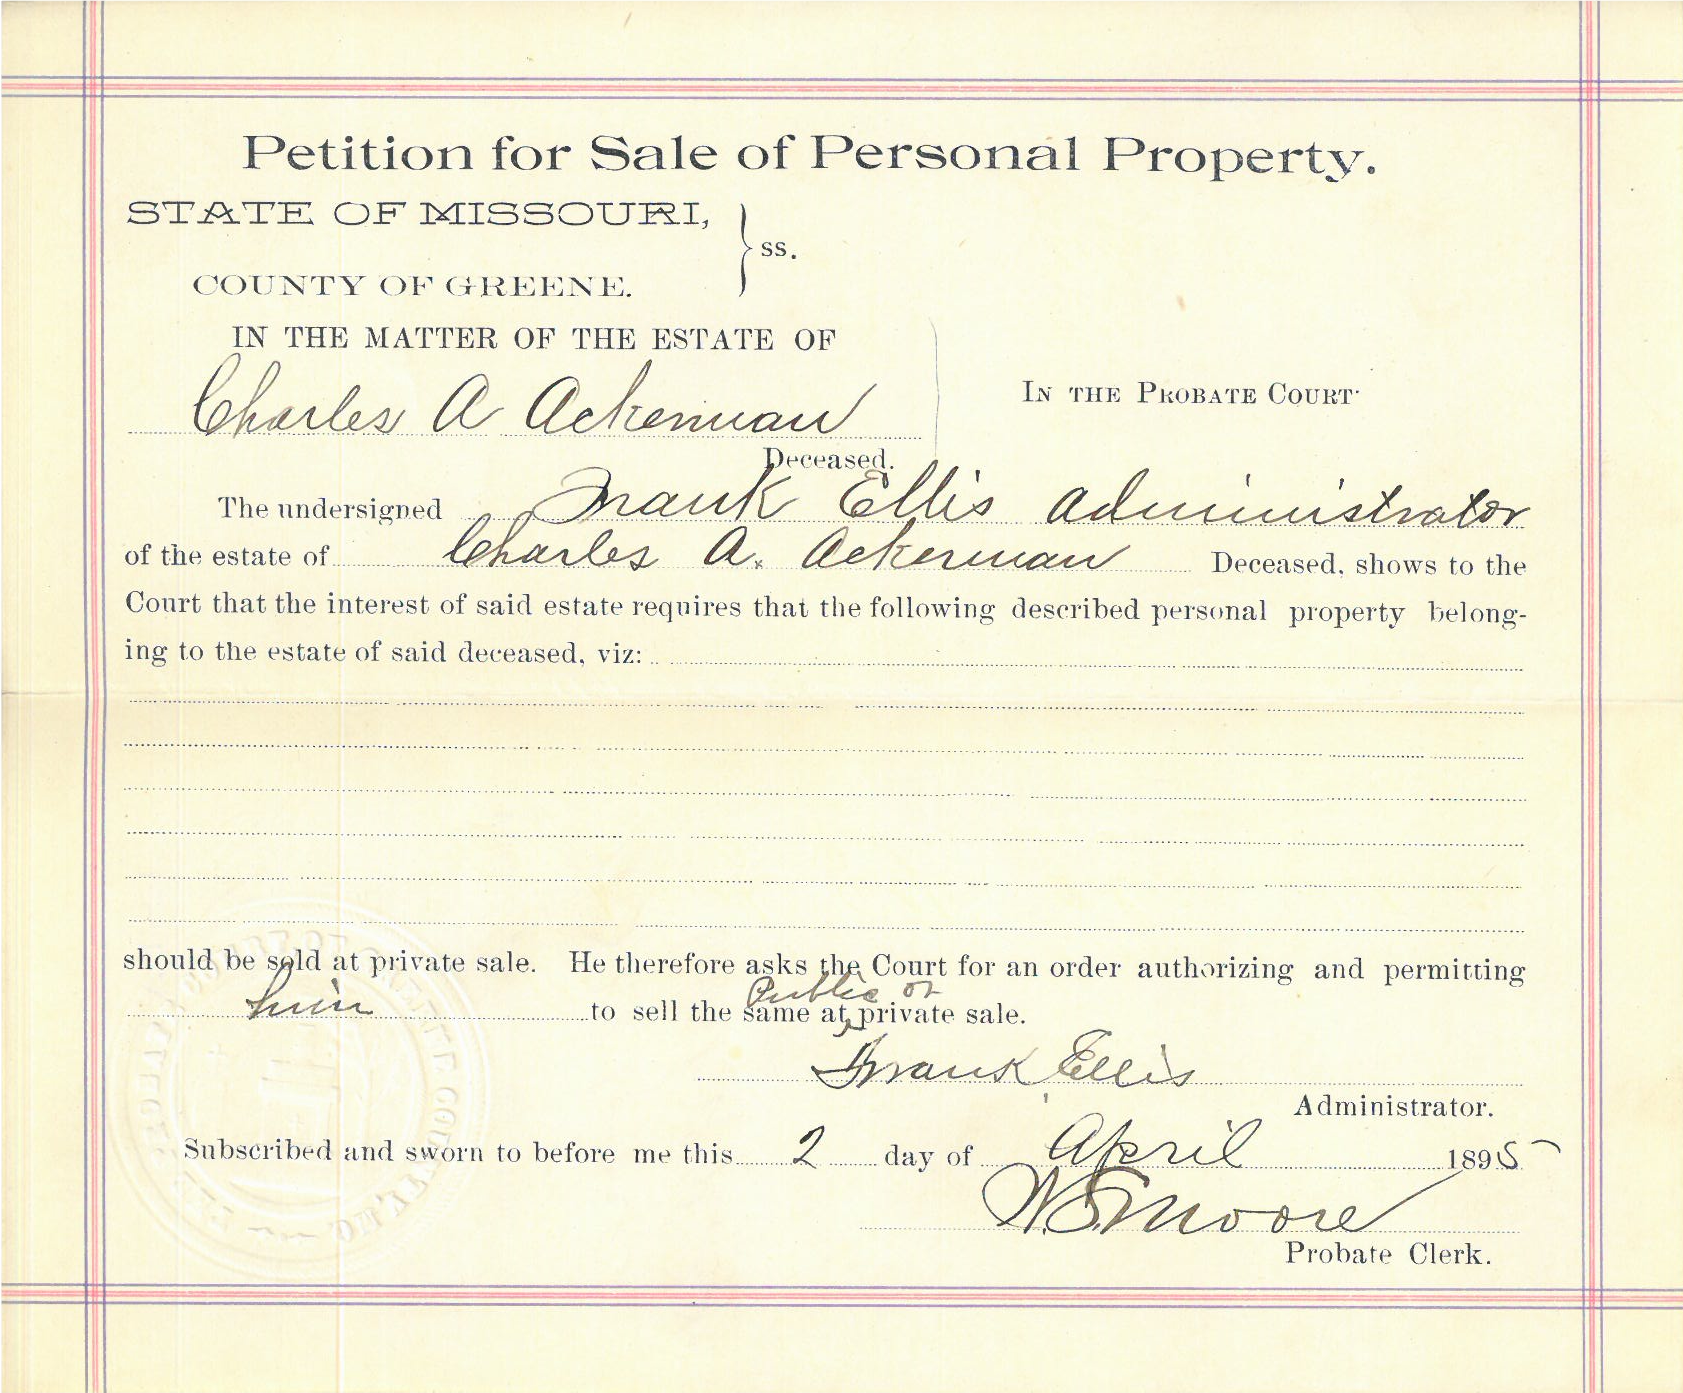 Petition for Sale of Personal Property.
STATE OF MISSOURI,
ss.
COUNTY OF GREENE.
IN THE MATTER OF THE ESTATE OF
Charles A Ackerman
IN THE PROBATE COURT
Deceased.
The undersigned Frank Ellis Administrator
of the estate of Charles A. Ackerman Deceased, shows to the
Court that the interest of said estate requires that the following described personal property belong-
ing to the estate of said deceased, viz:
should be sold at private sale. He therefore asks the Court for an order authorizing and permitting
Public or
him to sell the same at private sale.
Frank Ellis
Administrator.
Subscribed and sworn to before me this 2 day of April 1895
Moore
Probate Clerk.